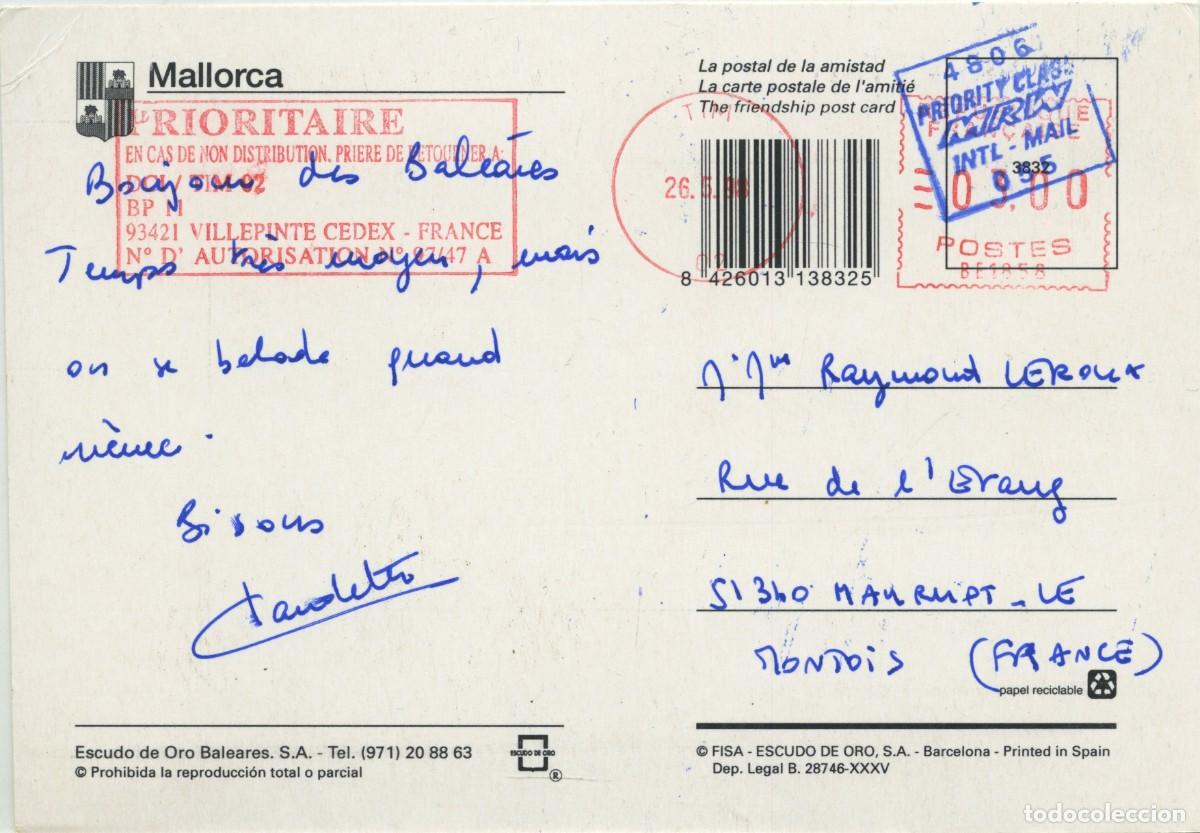 Mallorca
La postal de la amistad
La carte postale de l'amitié
The friendship post card
PRIORITAIRE
EN CAS DE NON DISTRIBUTION, PRIERE DE RETOURNER A:
DCI / TIM-92
BP 11
93421 VILLEPINTE CEDEX - FRANCE
N° D' AUTORISATION N° 97/47 A
Bonjour des Baléares
Temps très moyen, mais
on se balade quand
même.
Bisous
TIM
26.5.98
02
8 426013 138325
4806
PRIORITY CLASS
MRW
INTL - MAIL
055
3832
FRANÇAISE
03,00
POSTES
BE1858
M. Mme Raymond LEROUX
Rue de l'Etang
51340 MAURUPT-LE
MONTOIS (FRANCE)
papel reciclable
Escudo de Oro Baleares. S.A. - Tel. (971) 20 88 63
© Prohibida la reproducción total o parcial
ESCUDO DE ORO
®
© FISA - ESCUDO DE ORO, S.A. - Barcelona - Printed in Spain
Dep. Legal B. 28746-XXXV
todocoleccion